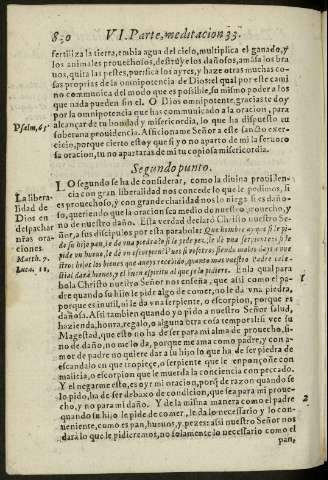 830 VI. Parte. meditacion 33.
fertiliza la tierra, embia agua del cielo, multiplica el ganado, y
los animales prouechosos, destruye los dañosos, amasa los bra
uos, quita las pestes, purifica los ayres, y haze otras muchas co-
sas proprias de la omnipotencia de Dios: el qual por este cami
no comunica del modo que es possible, su mismo poder a los
que nada pueden sin el. O Dios omnipotente, gracias te doy
por la omnipotencia que has comunicado a la oracion, para
alcançar de tu bondad y misericordia, lo que ha dispuesto tu
soberana prouidencia. Aficioname Señor a este sancto exer-
Psalm. 65.
cicio, porque cierto estoy que si yo no aparto de mi la feruoro
sa oracion, tu no apartaras de mi tu copiosa misericordia.
Segundo punto.
LO segundo se ha de considerar, como la diuina prouidencia
con gran liberalidad nos concede lo que le pedimos, si
es prouechoso, y con grande charidad nos lo niega si es daño-
so, queriendo que la oracion sea medio de nuestro prouecho, y
no de nuestro daño. Esta verdad declarò Christo nuestro Se-
ñor, a sus discipulos por esta parabola:
La libera
lidad de
Dios en
despachar
nr̃as ora-
ciones
Matth. 7.
Luca. 11.
Que hombre ay que si le pi-
de su hijo pan, le de una piedra? o si le pide pez, le de una serpiente? si le
pide un hueuo, le de un escorpion?
stros hijos los bienes que aueys recebido, quanto mas vuestro Padre cele-
stial dará bienes, y el buen espiritu al que se lo pidiere. En la qual para
bola Christo nuestro Señor nos enseña, que assi como el pa-
1
dre quando su hijo le pide algo de comer, no le da vna piedra,
porque es inutil, ni le da vna serpiente, o escorpion, porque es
dañosa. Assi tambien quando yo pido a nuestro Señor salud,
hazienda, honra, regalo, o alguna otra cosa temporal: si vee su
Magestad, que esto no ha de ser para mi alma de prouecho, si-
no de daño, no me lo da, porque me ama como padre, y con a-
mor de padre no quiere dar a su hijo lo que ha de ser piedra de
escandalo en que tropiece, o serpiente que le enponçoñe con
malicia, o escorpion que le muerda la conciencia con peccado.
Y el negarme esto, es oyr mi oracion, porq̃ de razon quando se
lo pido, ha de ser debaxo de condicion, que sea para mi proue-
cho, y no para mi daño. Y de la misma manera como el padre
2
quando su hijo le pide de comer, le da lo necessario y lo con-
ueniente, como es pan, hueuos, y pezes: assi nuestro Señor nos
dará lo que le pidieremos, no solamente lo necessario como el
pan,